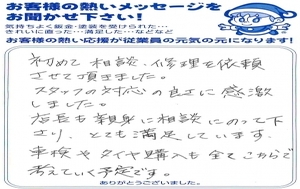 お客様の熱いメッセージを
お聞かせ下さい!
気持ちよく鈑金・塗装を受けられた…
きれいに直った…満足した…などなど
お客様の熱い応援が従業員の元気の元になります!
初めて相談、修理を依頼
させて頂きました。
スタッフの対応の良さに感激
しました。
店長も親身に相談にのって下
さり、とても満足しています。
車検やタイヤ購入も全てこちらで
考えていく予定です。
ありがとうございました。